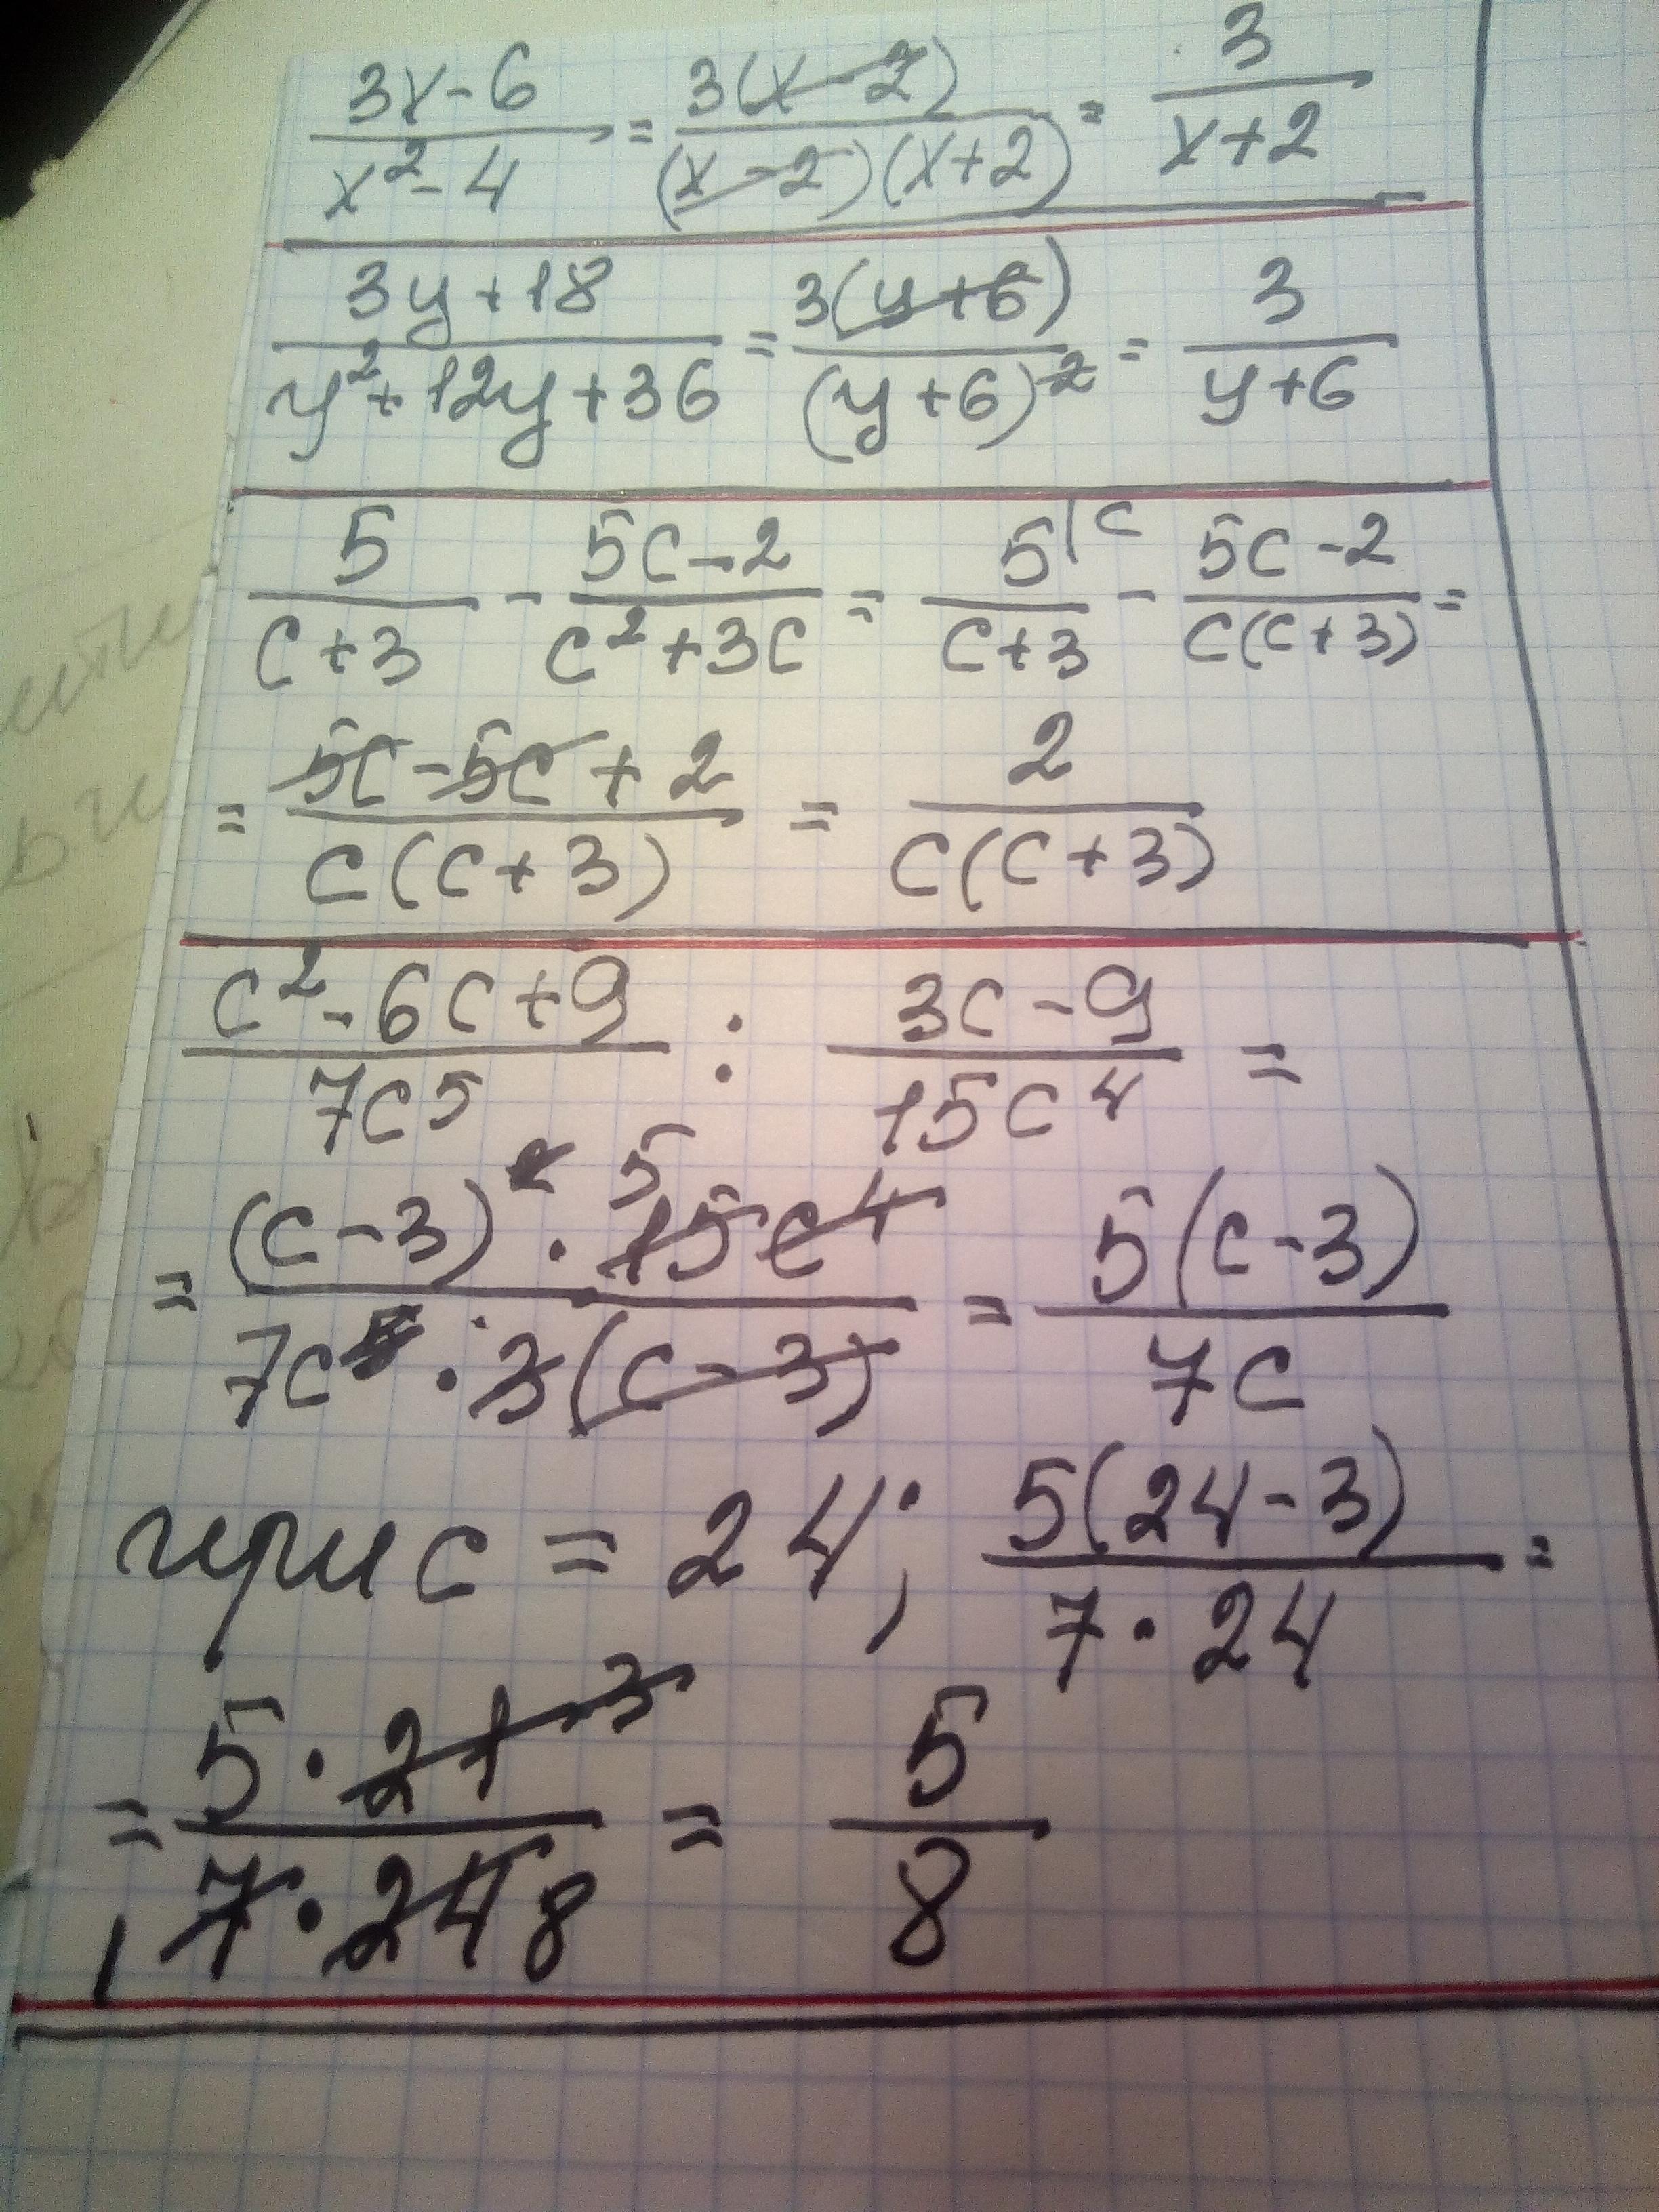 (3x-6)/(x²-4) = 3(x-2)/((x-2)(x+2)) = 3/(x+2)
(3y+18)/(y²+12y+36) = 3(y+6)/(y+6)² = 3/(y+6)
5/(c+3) - (5c-2)/(c²+3c) = 5|c/(c+3) - (5c-2)/(c(c+3)) =
= (5c-5c+2)/(c(c+3)) = 2/(c(c+3))
(c²-6c+9)/(7c⁵) : (3c-9)/(15c⁴) =
= ((c-3)² · 15 5 c⁴)/(7c⁵ · 3(c-3)) = 5(c-3)/(7c)
при c = 24; 5(24-3)/(7·24) =
= (5·21 3)/(1 7·24 8) = 5/8